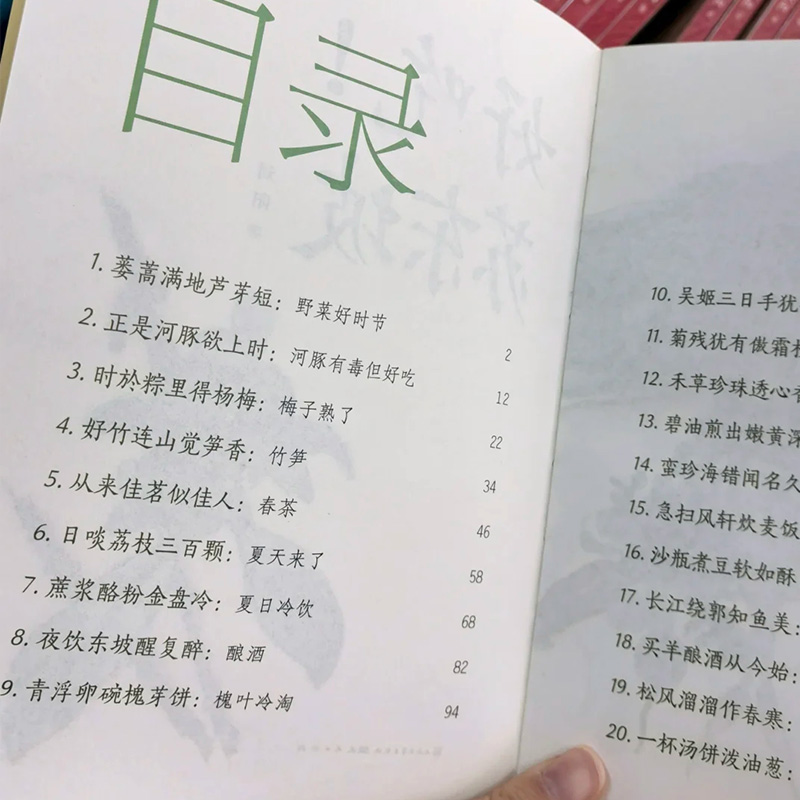 目录
1. 蒌蒿满地芦芽短：野菜好时节 2
2. 正是河豚欲上时：河豚有毒但好吃 12
3. 时於粽里得杨梅：梅子熟了 22
4. 好竹连山觉笋香：竹笋 34
5. 从来佳茗似佳人：春茶 46
6. 日啖荔枝三百颗：夏天来了 58
7. 蔗浆酪粉金盘冷：夏日冷饮 68
8. 夜饮东坡醒复醉：酿酒 82
9. 青浮卵碗槐芽饼：槐叶冷淘 94
10. 吴姬三日手犹
11. 菊残犹有傲霜枝
12. 禾草珍珠透心香
13. 碧油煎出嫩黄深
14. 蛮珍海错闻名久
15. 急扫风轩炊麦饭
16. 沙瓶煮豆软如酥
17. 长江绕郭知鱼美：
18. 买羊酿酒从今始：
19. 松风溜溜作春寒：
20. 一杯汤饼泼油葱：